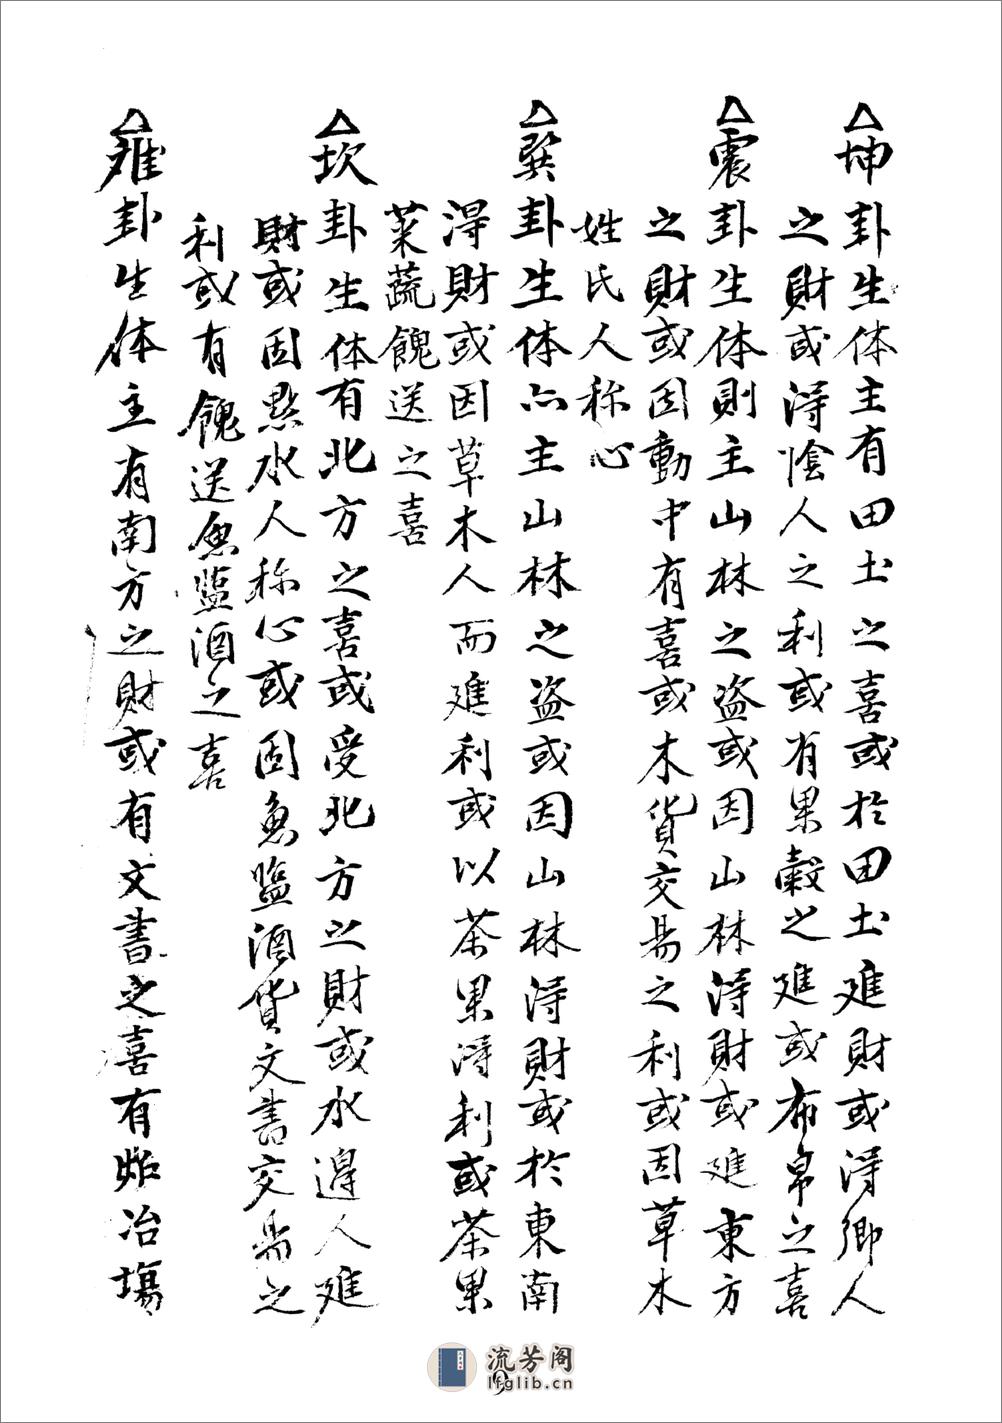 △坤卦生体主有田土之喜或於田土進財或得鄉人
之財或得陰人之利或有果穀之進或布帛之喜
△震卦生体則主山林之盗或因山林得財或進東方
之財或因動中有喜或木貨交易之利或因草木
姓氏人称心
△巽卦生体亦主山林之盗或因山林得財或於東南
得財或因草木人而進利或以茶果得利或茶果
菜蔬餽送之喜
△坎卦生体有北方之喜或受北方之財或水邊人進
財或因點水人称心或因魚盐酒貨文書交易之
利或有餽送魚盐酒之喜
△離卦生体主有南方之財或有文書之喜有炉冶塲
流芳阁
lfglib.cn
9